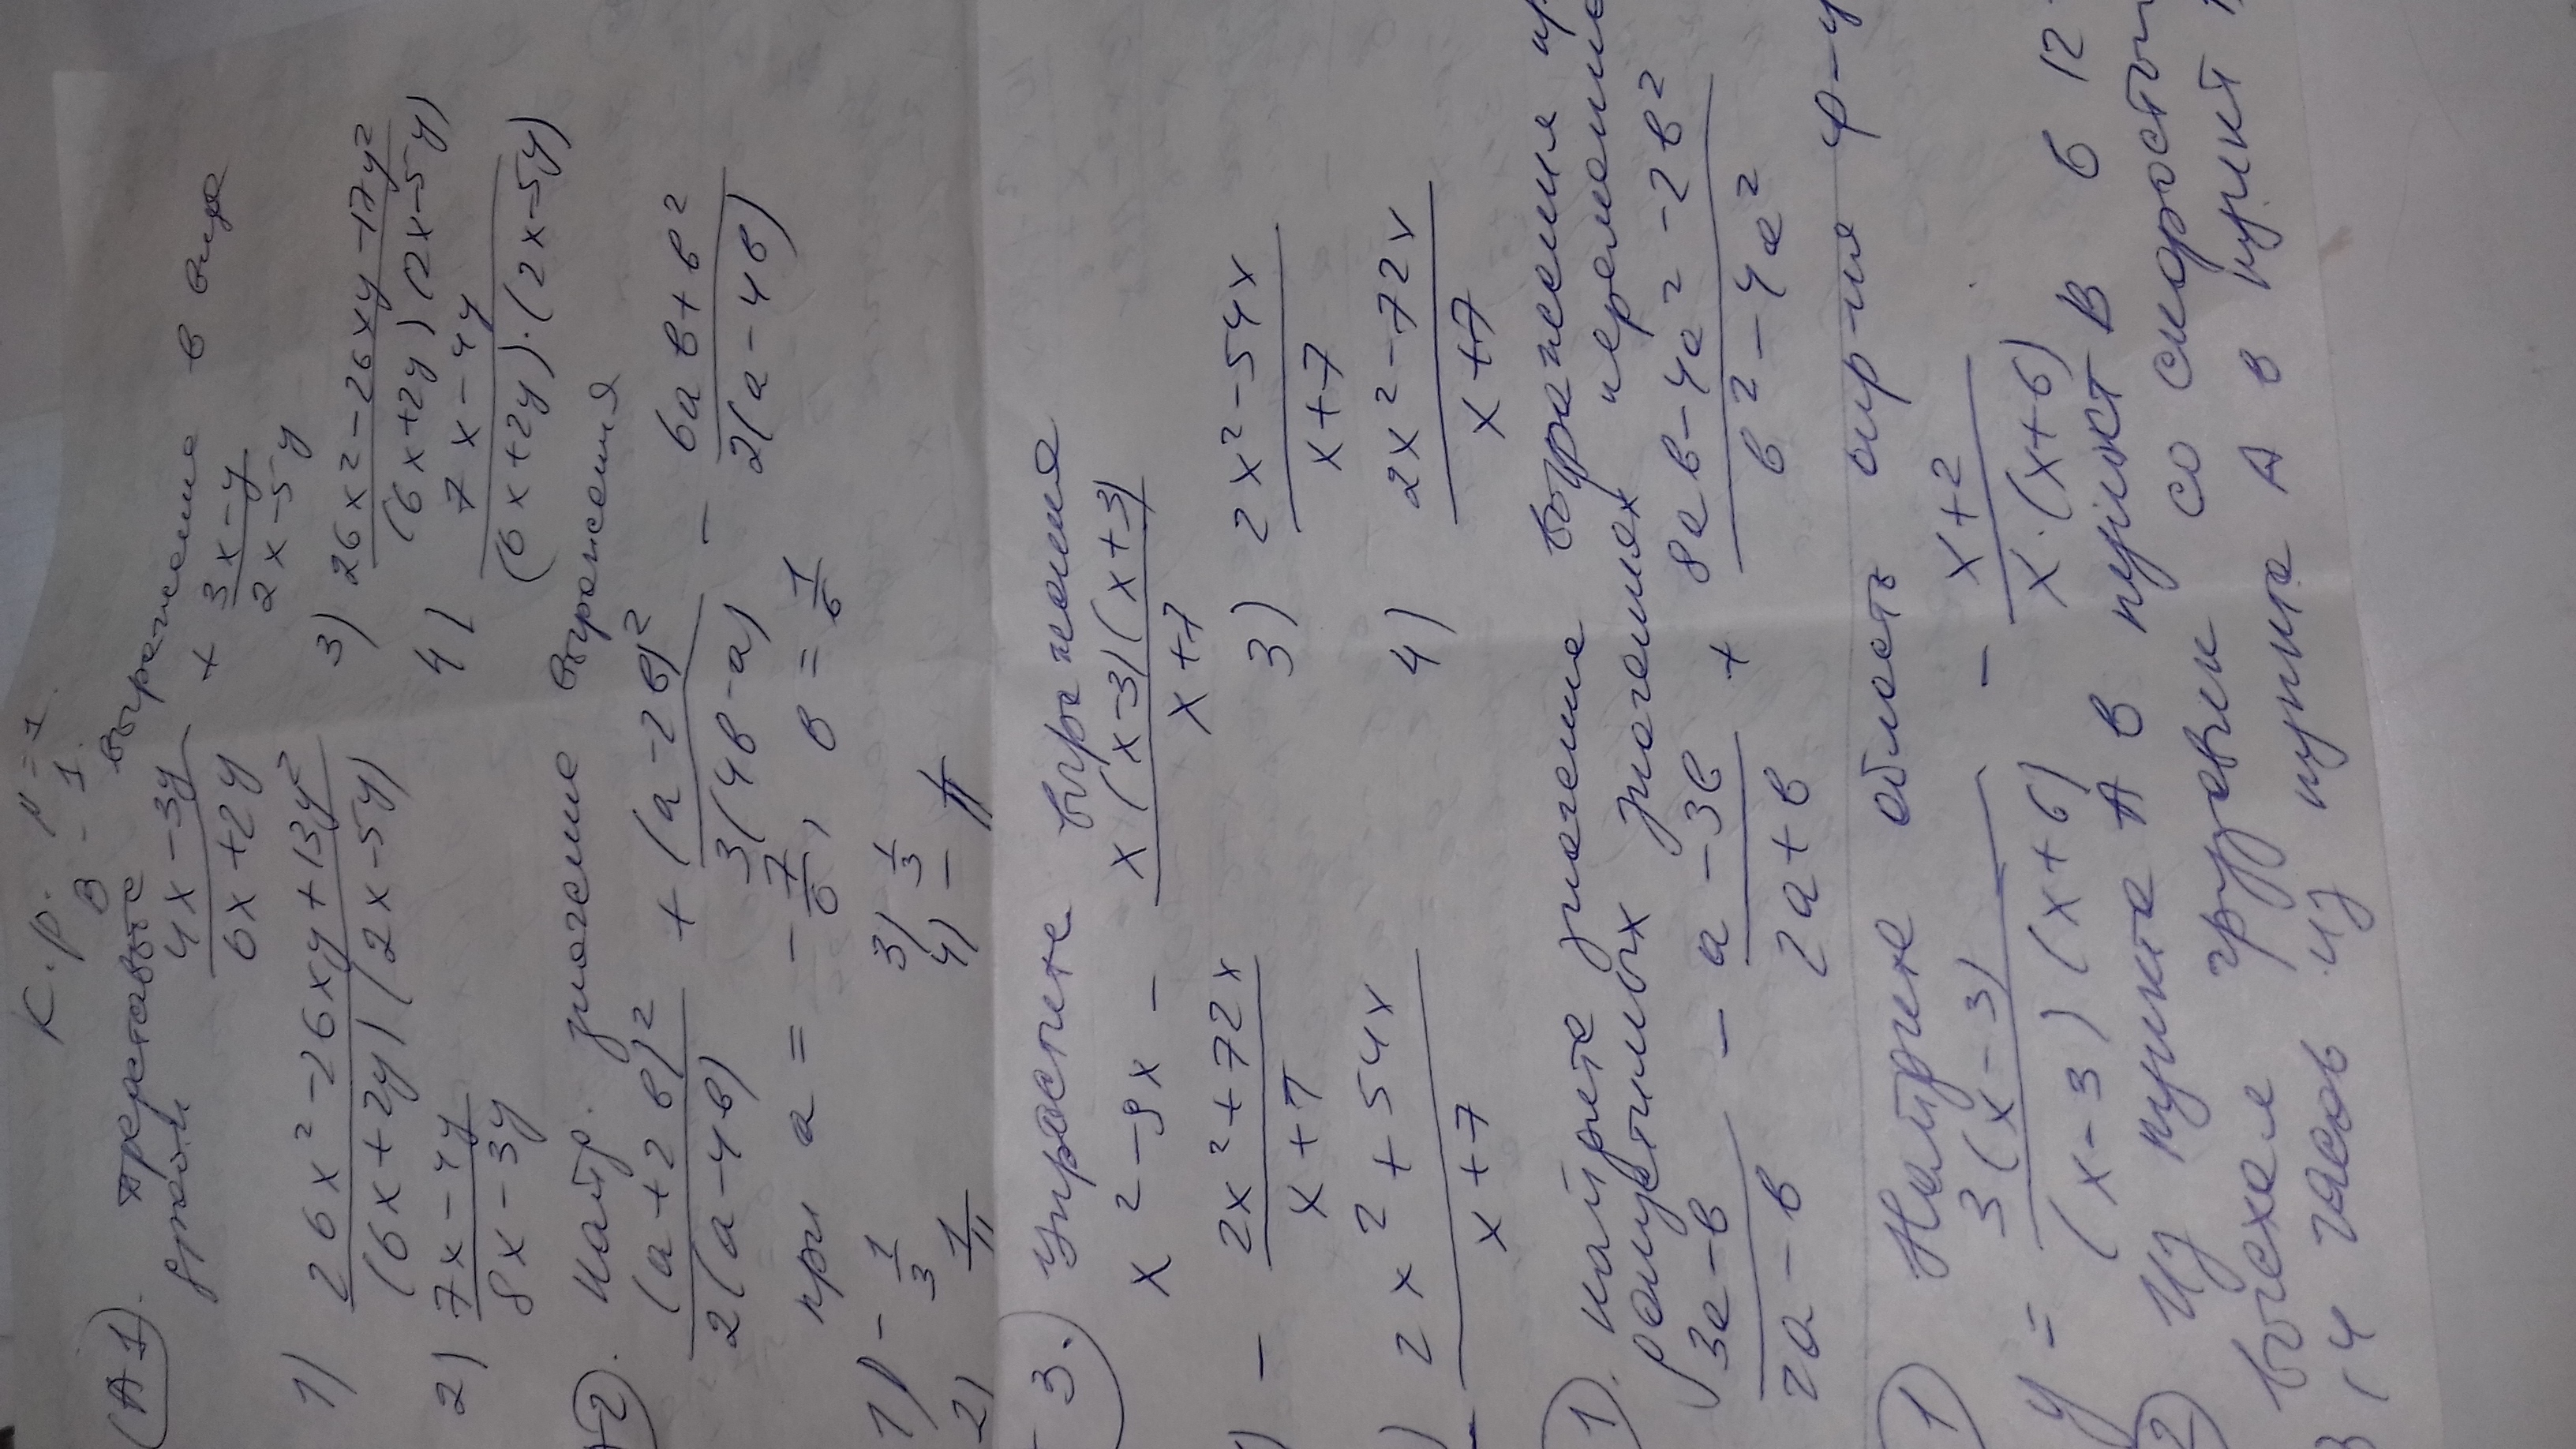 К.р. №1
В-1
А1. Представьте выражение в виде
дроби (4x-3y)/(6x+2y) + (3x-y)/(2x-5y)
1) (26x²-26xy+13y²)/((6x+2y)(2x-5y)) 3) (26x²-26xy-17y²)/((6x+2y)(2x-5y))
2) (7x-4y)/(8x-3y) 4) (7x-4y)/((6x+2y)·(2x-5y))
2). найд. значение выражения
(a+2b)²/(2(a-4b)) + (a-2b)²/(3(4b-a)) - (6ab+b²)/(2(a-4b))
при a = -7/6, b = 1/6
1) -1/3 3) 1/3
2) 1/11 4) -
3. Упростите выражения
x²-9x - (x(x-3)(x+3))/(x+7)
1) - (2x²+72x)/(x+7) 3) (2x²-54x)/(x+7)
(2x²+54x)/(x+7) 4) (2x²-72x)/(x+7)
1). Найдите значение выражения пр
допустимых значениях переменно
(3a-b)/(2a-b) - (a-3b)/(2a+b) + (8ab-4a²-2b²)/(b²-4a²)
1) Найдите область опр-ия ф-и
y = (3(x-3))/((x-3)(x+6)) - (x+2)/(x·(x+6))
2) Из пункта А в пункт В в 12
выехал грузовик со скоростью
В 14 часов из пункта А в пункт